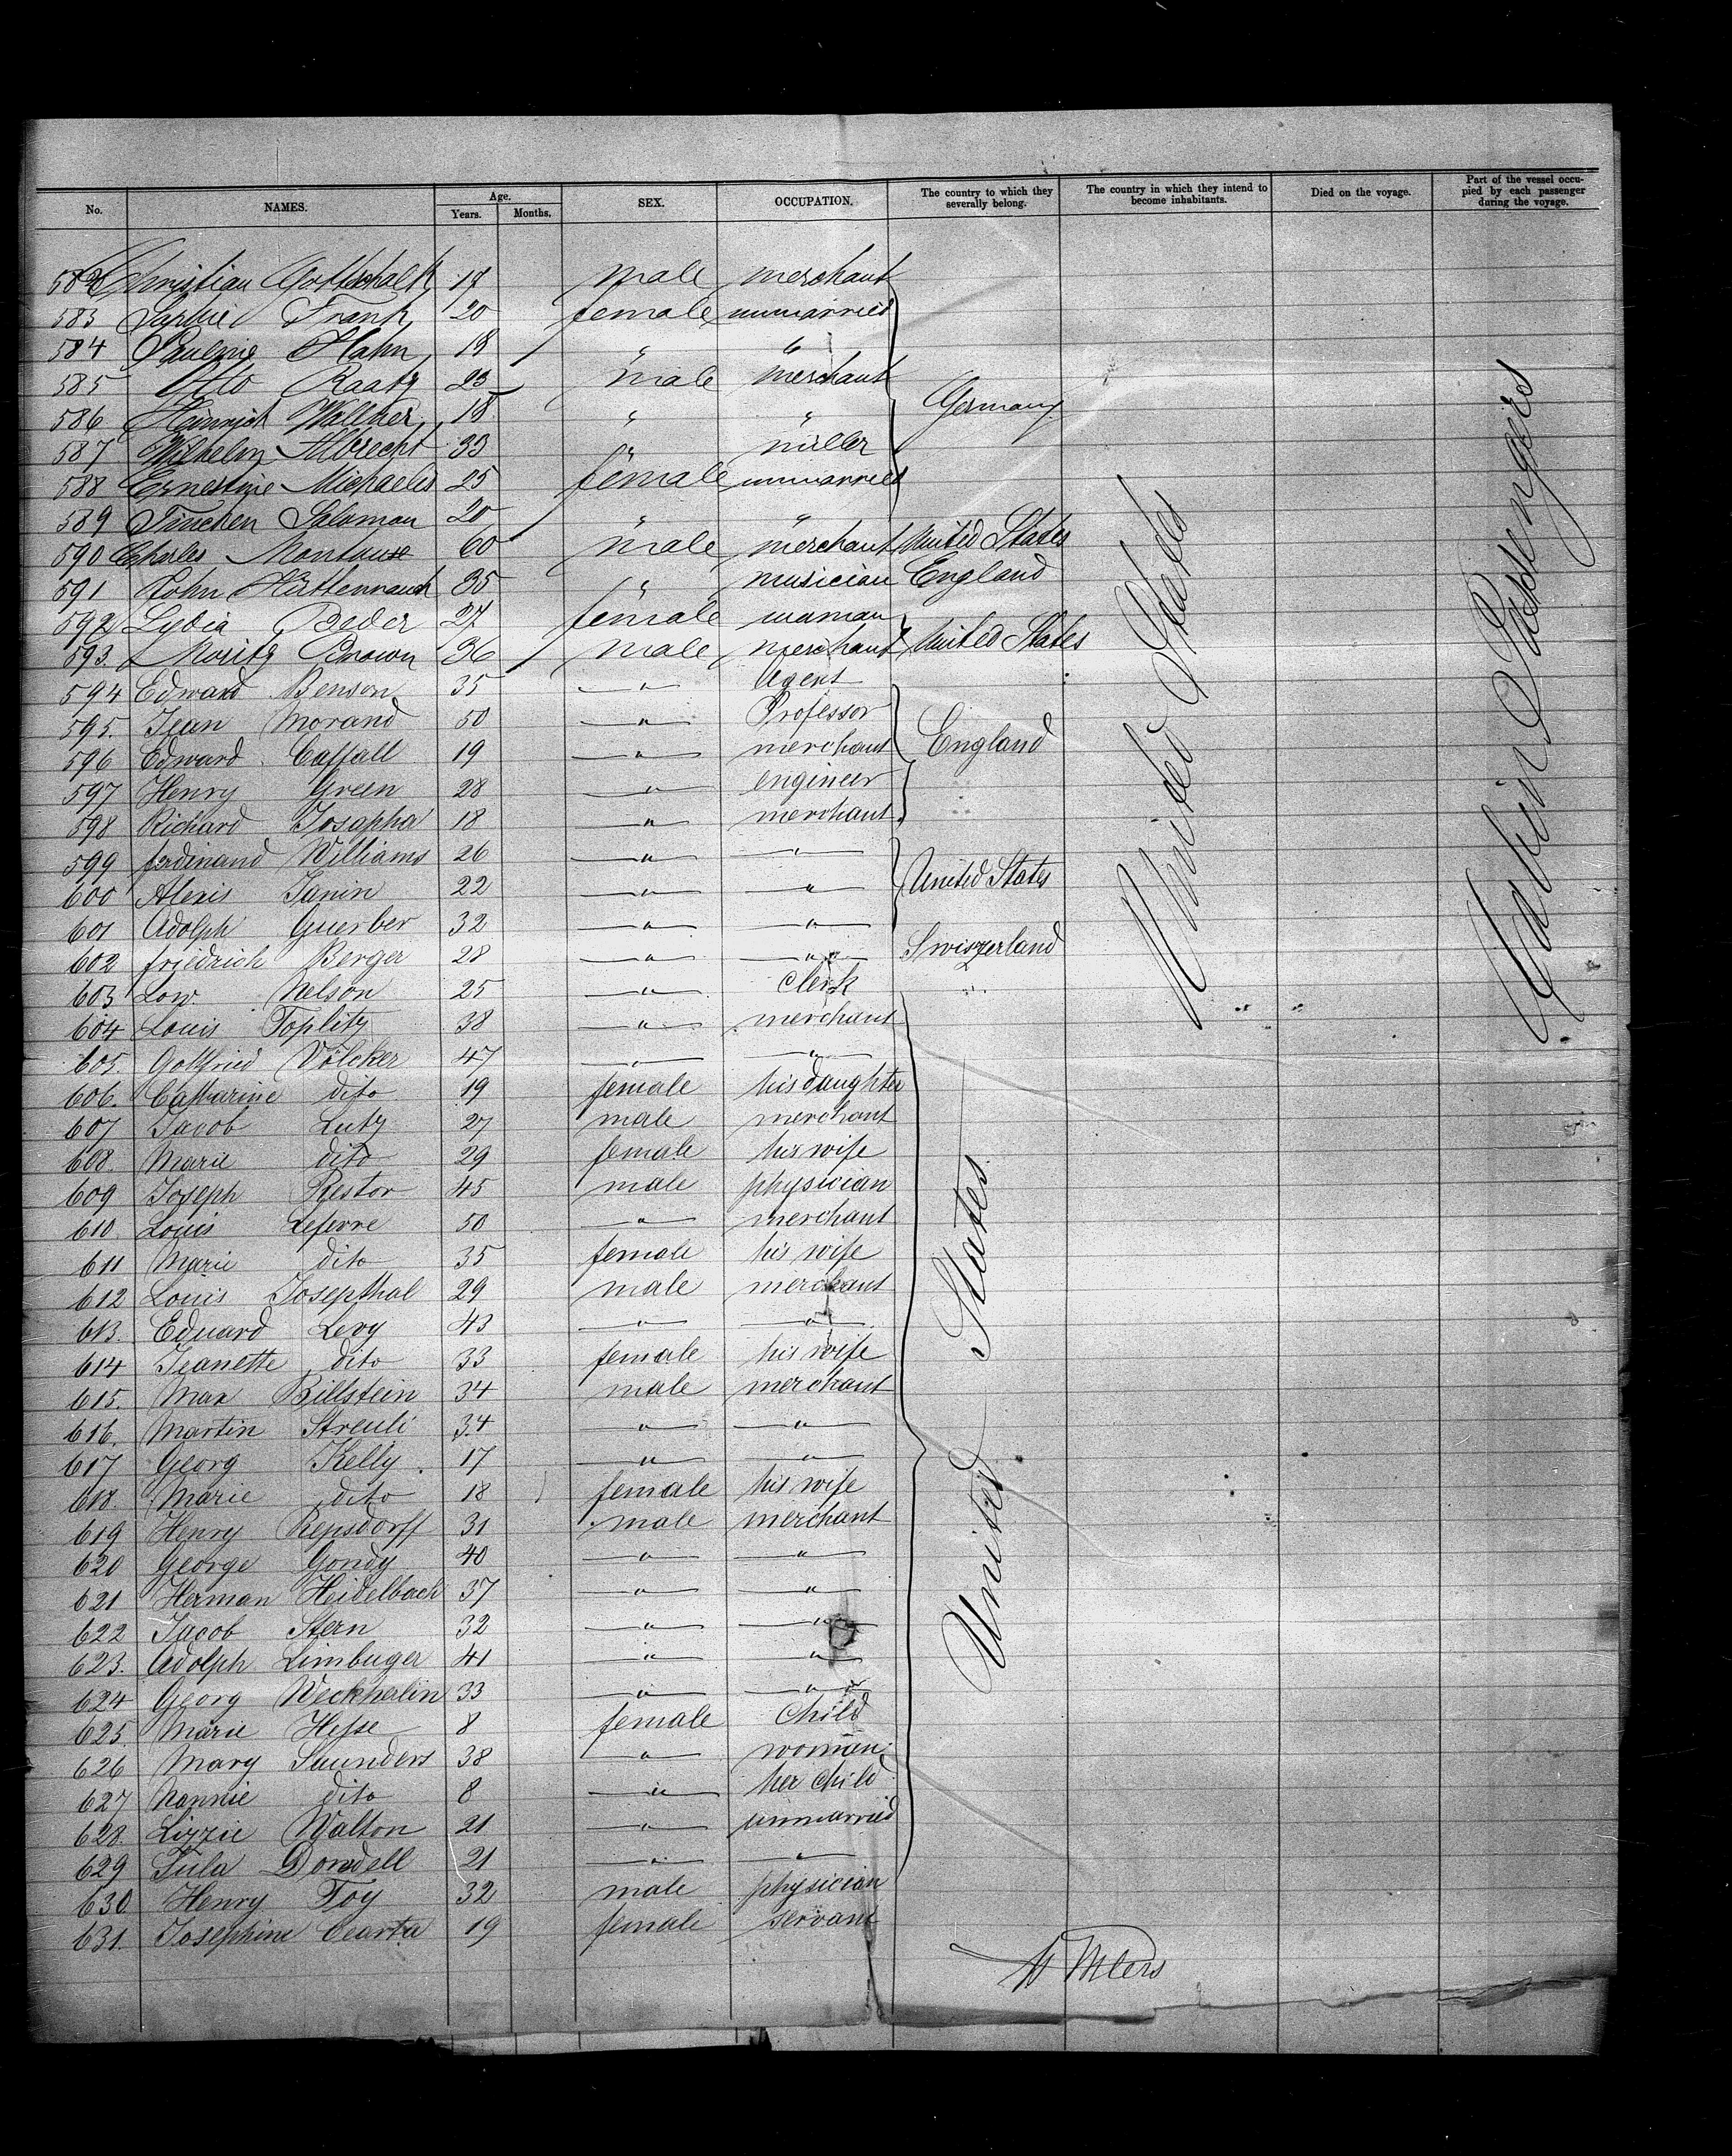 No. NAMES. Age. Years. Months. SEX. OCCUPATION. The country to which they severally belong. The country in which they intend to become inhabitants. Died on the voyage. Part of the vessel occupied by each passenger during the voyage.
582 Christian Gottschalk 17 male merchant
583 Sophie Frank 20 female unmarried
584 Pauline Hahn 18 " "
585 Otto Raatz 23 male merchant
586 Heinrich Wallner 18 " " Germany
587 Wilhelm Albrecht 33 " miller
588 Ernestine Michaelis 25 female unmarried
589 Tinchen Salomon 20 " "
590 Charles 60 male merchant United States
591 John Hüttenrauch 35 " musician England
592 Lydia Beder 27 female woman
593. Moritz Brown 36 male merchant United States
594 Edward Benson 35 " Agent
595. Jean Morand 50 " Professor
596 Edward Caffall 19 " merchant England
597 Henry Green 28 " engineer
598 Richard Josapha 18 " merchant
599 ferdinand Williams 26 " "
600 Alexis Janin 22 " " United States
601 Adolph Guerber 32 " "
602 friedrich Berger 28 " " Swiszerland
603 Low Nelson 25 " Clerk
604 Louis Toplitz 38 " merchant
605. Gottfried Völcker 47 " "
606. Catharine dito 19 female his daughter
607 Jacob Lutz 27 male merchant
608. Marie dito 29 female his wife
609 Joseph Restor 45 male physician
610. Louis Lefevre 50 " merchant
611 Marie dito 35 female his wife
612 Louis Josepthal 29 male merchant
613. Eduard Levy 43 " "
614 Jeanette dito 33 female his wife
615. Max Billstein 34 male merchant
616. Martin Streuli 34 " "
617 Georg Kelly. 17 " "
618. Marie dito 18 female his wife
619 Henry Repsdorff 31 male merchant
620 George Gondy 40 " "
621 Herman Heidelbach 37 " "
622 Jacob Stern 32 " "
623. Adolph Limbuger 41 " "
624 Georg Weckherlin 33 " "
625. Marie Hesse 8 female Child
626 Mary Saunders 38 " woman
627 Nannie dito 8 " her child
628. Lizzie Walton 21 " unmarried
629 Tula Dowdell 21 " "
630 Henry Foy 32 male physician
631. Josephine Cearta 19 female servant
United States
United States
Cabin Passengers